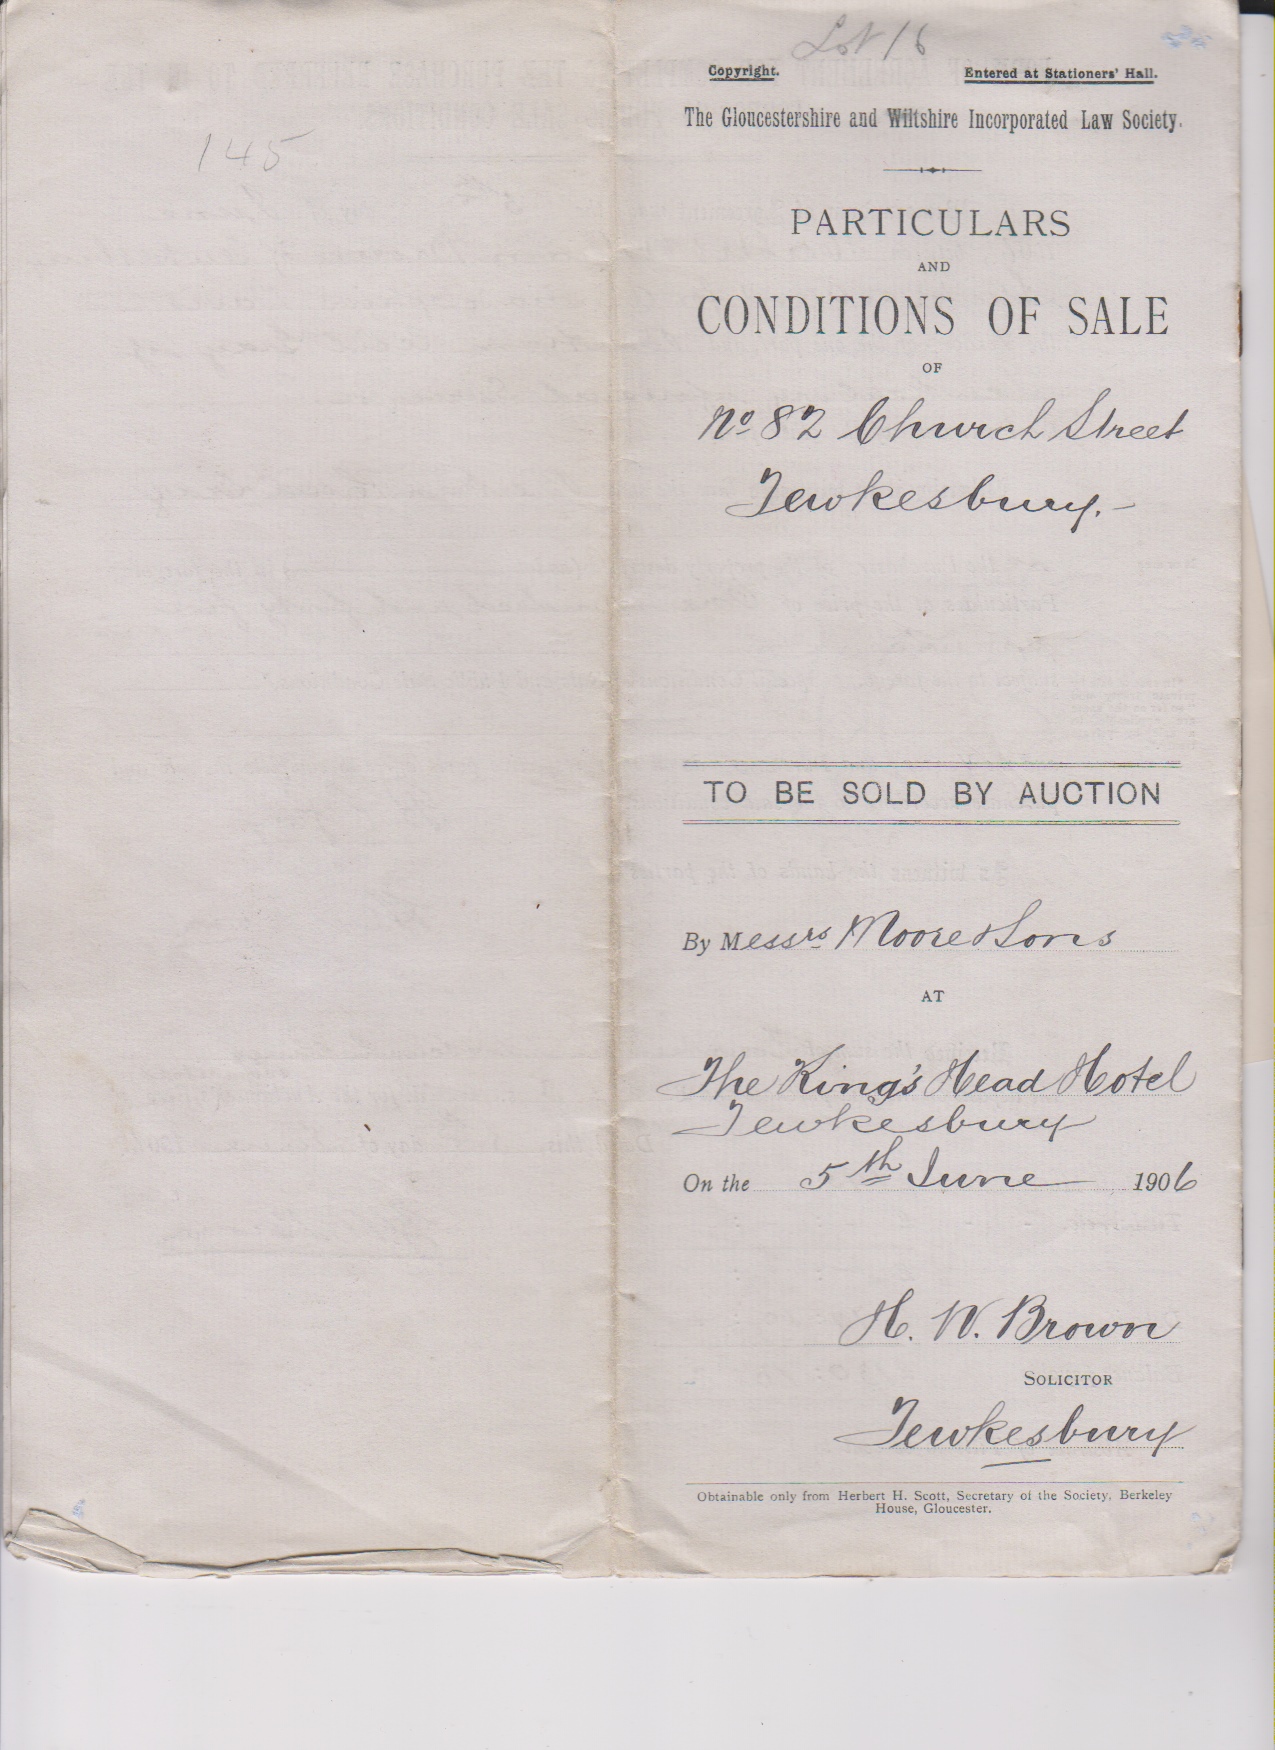 Lot 16
145
Copyright. Entered at Stationers' Hall.
The Gloucestershire and Wiltshire Incorporated Law Society.
PARTICULARS
AND
CONDITIONS OF SALE
OF
No 82 Church Street
Tewkesbury.-
TO BE SOLD BY AUCTION
By Messrs Moore & Sons
AT
The King's Head Hotel
Tewkesbury
On the 5th June 1906
H. W. Brown
SOLICITOR
Tewkesbury
Obtainable only from Herbert H. Scott, Secretary of the Society, Berkeley
House, Gloucester.